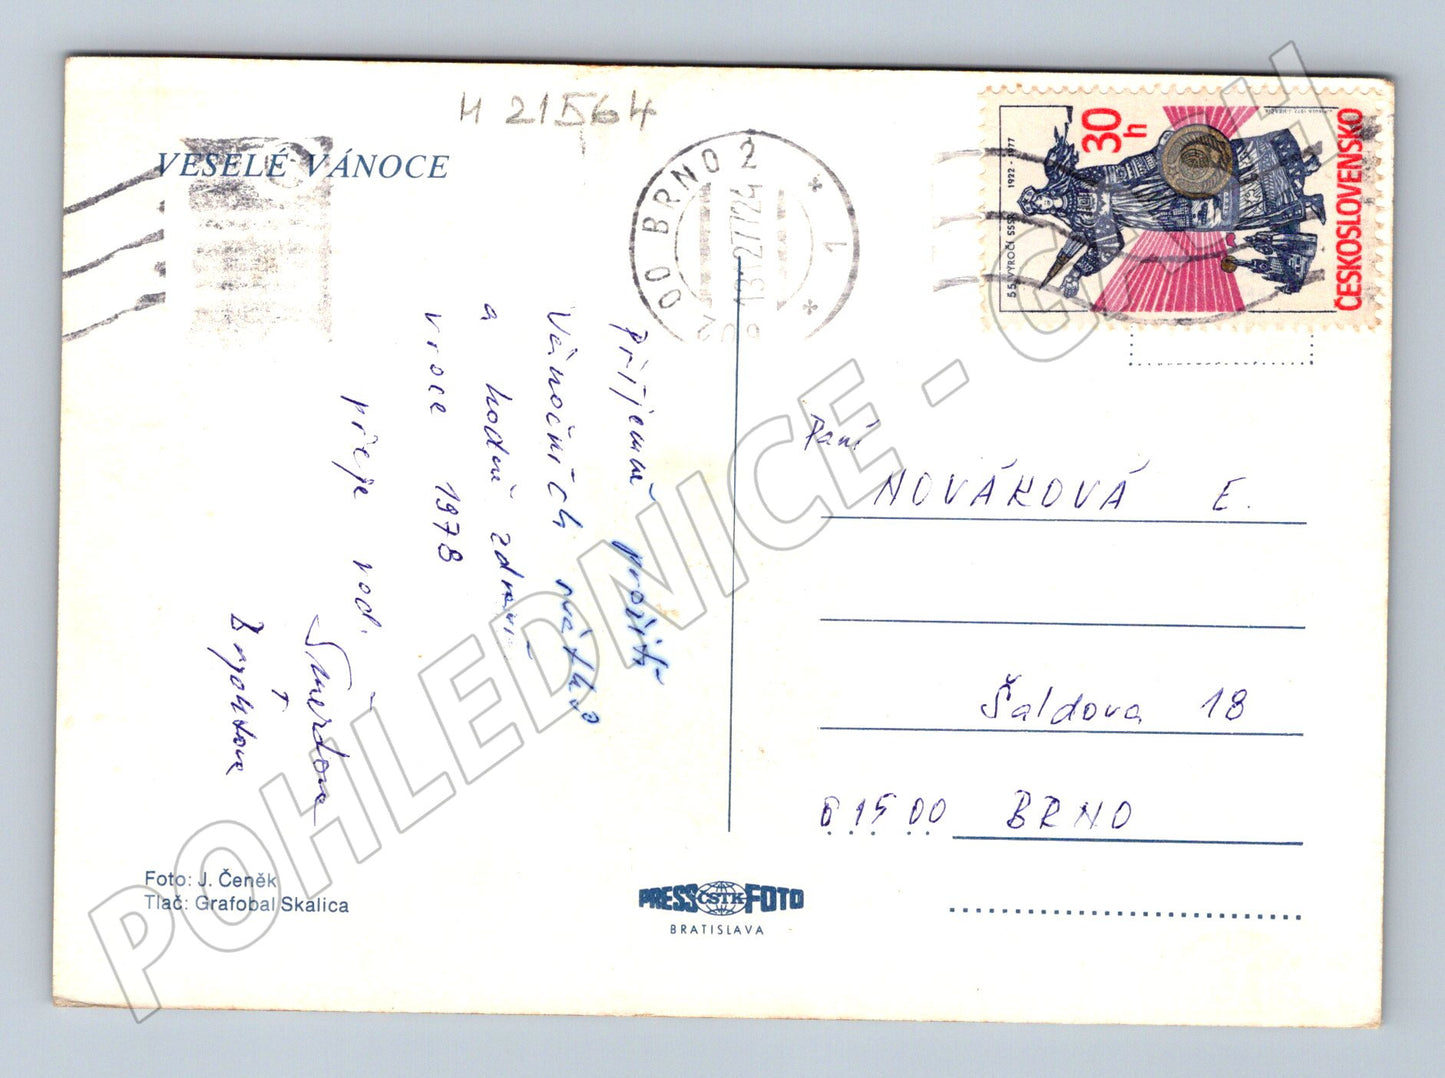 H 21564
VESELÉ VÁNOCE
00 BRNO 2
1
13.12.77-24
30h
ČESKOSLOVENSKO
55. VÝROČÍ SSSR 1922-1977
Příjemné prožití
Vánočních svátků
a hodně zdraví
v roce 1978
přeje rod.
Paní
NOVÁKOVÁ E.
Šaldova 18
615 00 BRNO
Foto: J. Čeněk
Tlač: Grafobal Skalica
PRESS ČSTK FOTO
BRATISLAVA
POHLEDNICE - G